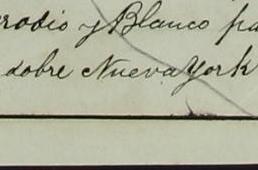 y Blanco pa
sobre Nueva York